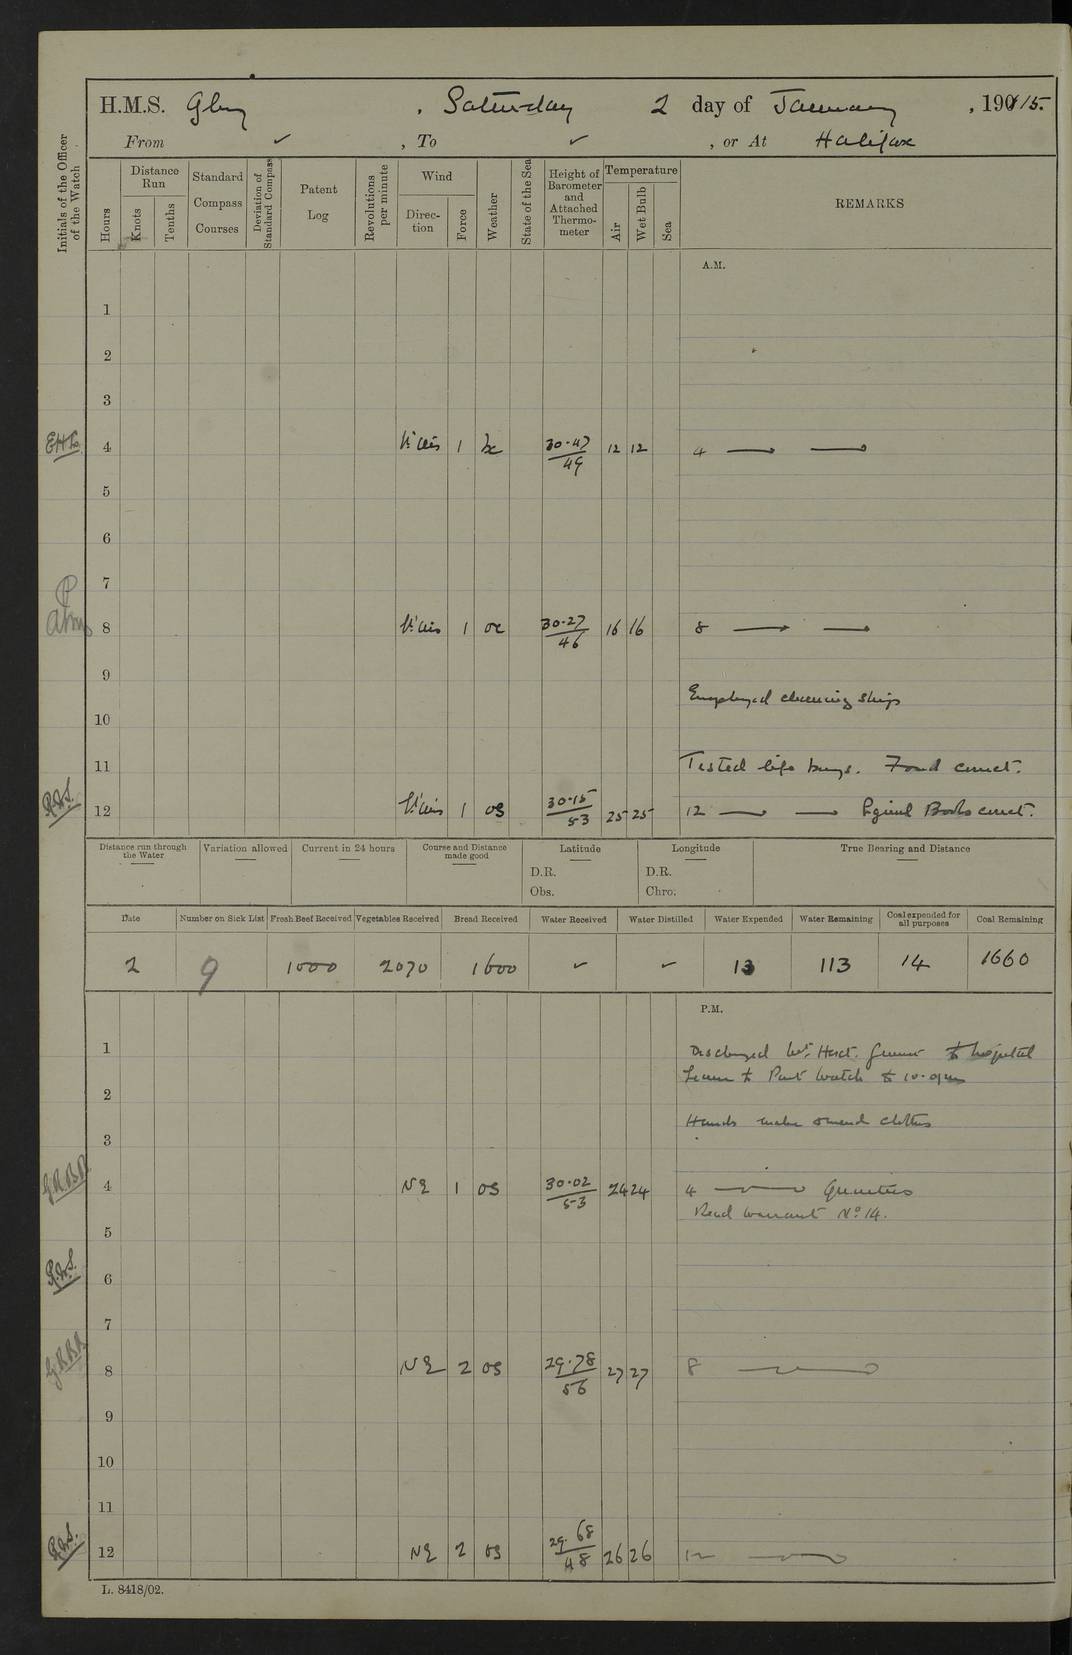 H.M.S. Glory , Saturday 2 day of January , 1915.
From ✓ , To ✓ , or At Halifax
Initials of the Officer of the Watch
Hours
Distance Run
Knots
Tenths
Standard Compass Courses
Deviation of Standard Compass
Patent Log
Revolutions per minute
Wind
Direction
Force
Weather
State of the Sea
Height of Barometer and Attached Thermometer
Temperature
Air
Wet Bulb
Sea
REMARKS
A.M.
1
2
3
4 1 bc 30.47 / 49 12 12 4
5
6
7
8 1 oc 30.27 / 46 16 16 8
9
Employed cleaning ship
10
11 Tested life buoys. Found correct.
R.W.S. 12 1 os 30.15 / 53 25 25 12 Books correct.
Distance run through the Water
Variation allowed
Current in 24 hours
Course and Distance made good
Latitude
D.R.
Obs.
Longitude
D.R.
Chro.
True Bearing and Distance
Date Number on Sick List Fresh Beef Received Vegetables Received Bread Received Water Received Water Distilled Water Expended Water Remaining Coal expended for all purposes Coal Remaining
2 9 1000 2070 1600 ✓ ✓ 13 113 14 1660
P.M.
1 Discharged Gunner to hospital
Leave to Part Watch to 10.0pm
2
Hands make & mend clothes
3
G.R.B.B. 4 NE 1 os 30.02 / 53 24 24 4 Quarters
Read Warrant No. 14.
5
R.W.S. 6
7
G.R.B.B. 8 NE 2 os 29.78 / 56 27 27 8
9
10
11
R.W.S. 12 NE 2 os 29.68 / 48 26 26 12
L. 8418/02.